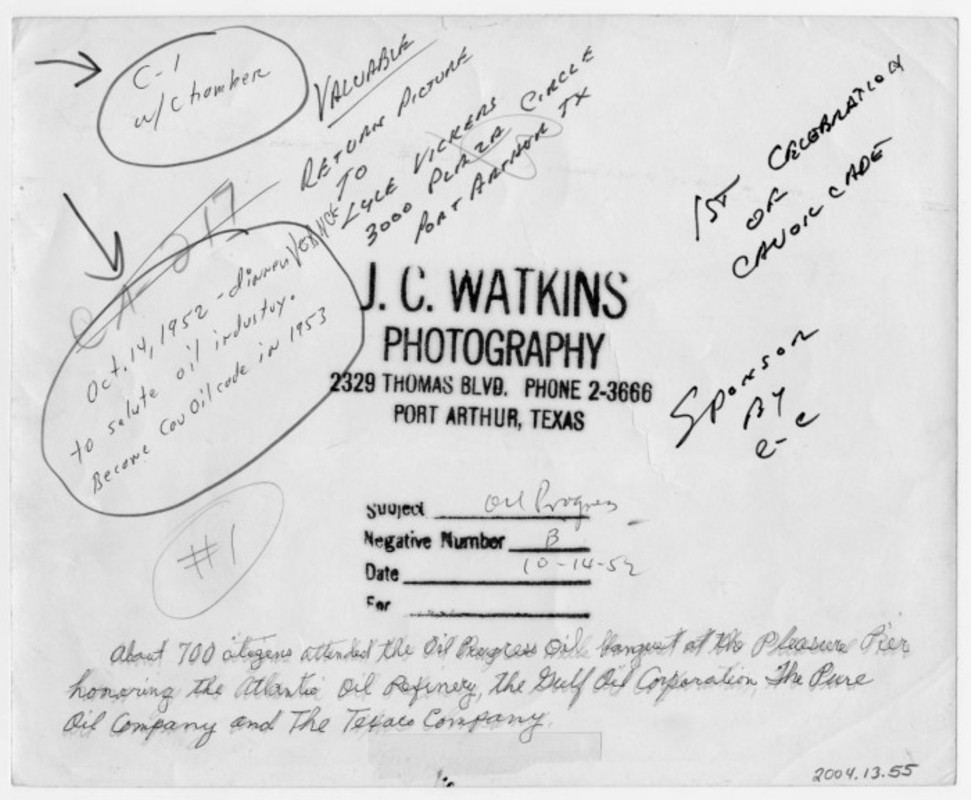 C-1
w/ Chamber
VALUABLE
RETURN PICTURE
TO
LYLE VICKERS
3000 PLAZA CIRCLE
PORT ARTHUR TX
1ST CELEBRATION
OF
CAVOIL CADE
SPONSOR
BY
C-C
217
Oct. 14, 1952 - dinner
to salute oil industry.
Become CavOilcade in 1953
#1
J. C. WATKINS
PHOTOGRAPHY
2329 THOMAS BLVD. PHONE 2-3666
PORT ARTHUR, TEXAS
Subject Oil Progress
Negative Number B
Date 10-14-52
For
About 700 citizens attended the Oil Progress Oil banquet at the Pleasure Pier
honoring the Atlantic Oil Refinery, the Gulf Oil Corporation The Pure
Oil Company and The Texaco Company.
2004.13.55